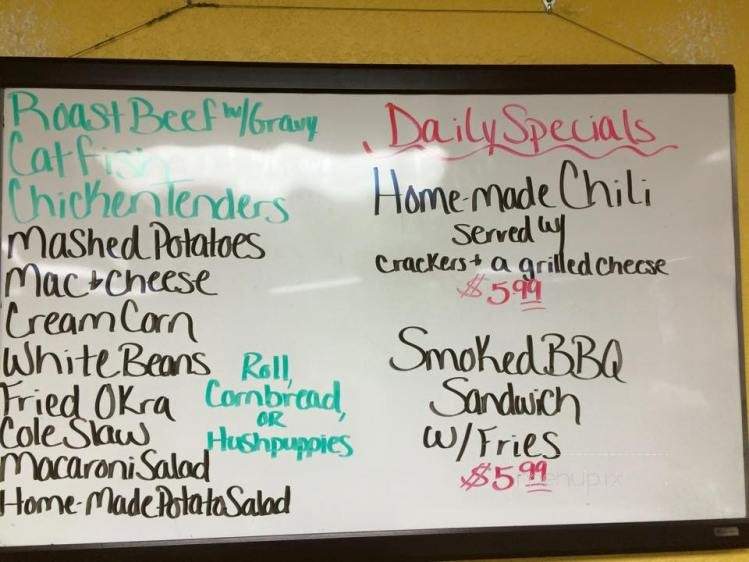 Roast Beef w/Gravy
Catfish
Chicken Tenders
Mashed Potatoes
Mac + Cheese
Cream Corn
White Beans
Fried Okra
Cole Slaw
Macaroni Salad
Home-Made Potato Salad
Roll,
Cornbread,
OR
Hushpuppies
Daily Specials
Home-made Chili
Served w/
crackers + a grilled cheese
$5.99
Smoked BBQ
Sandwich
w/Fries
$5.99